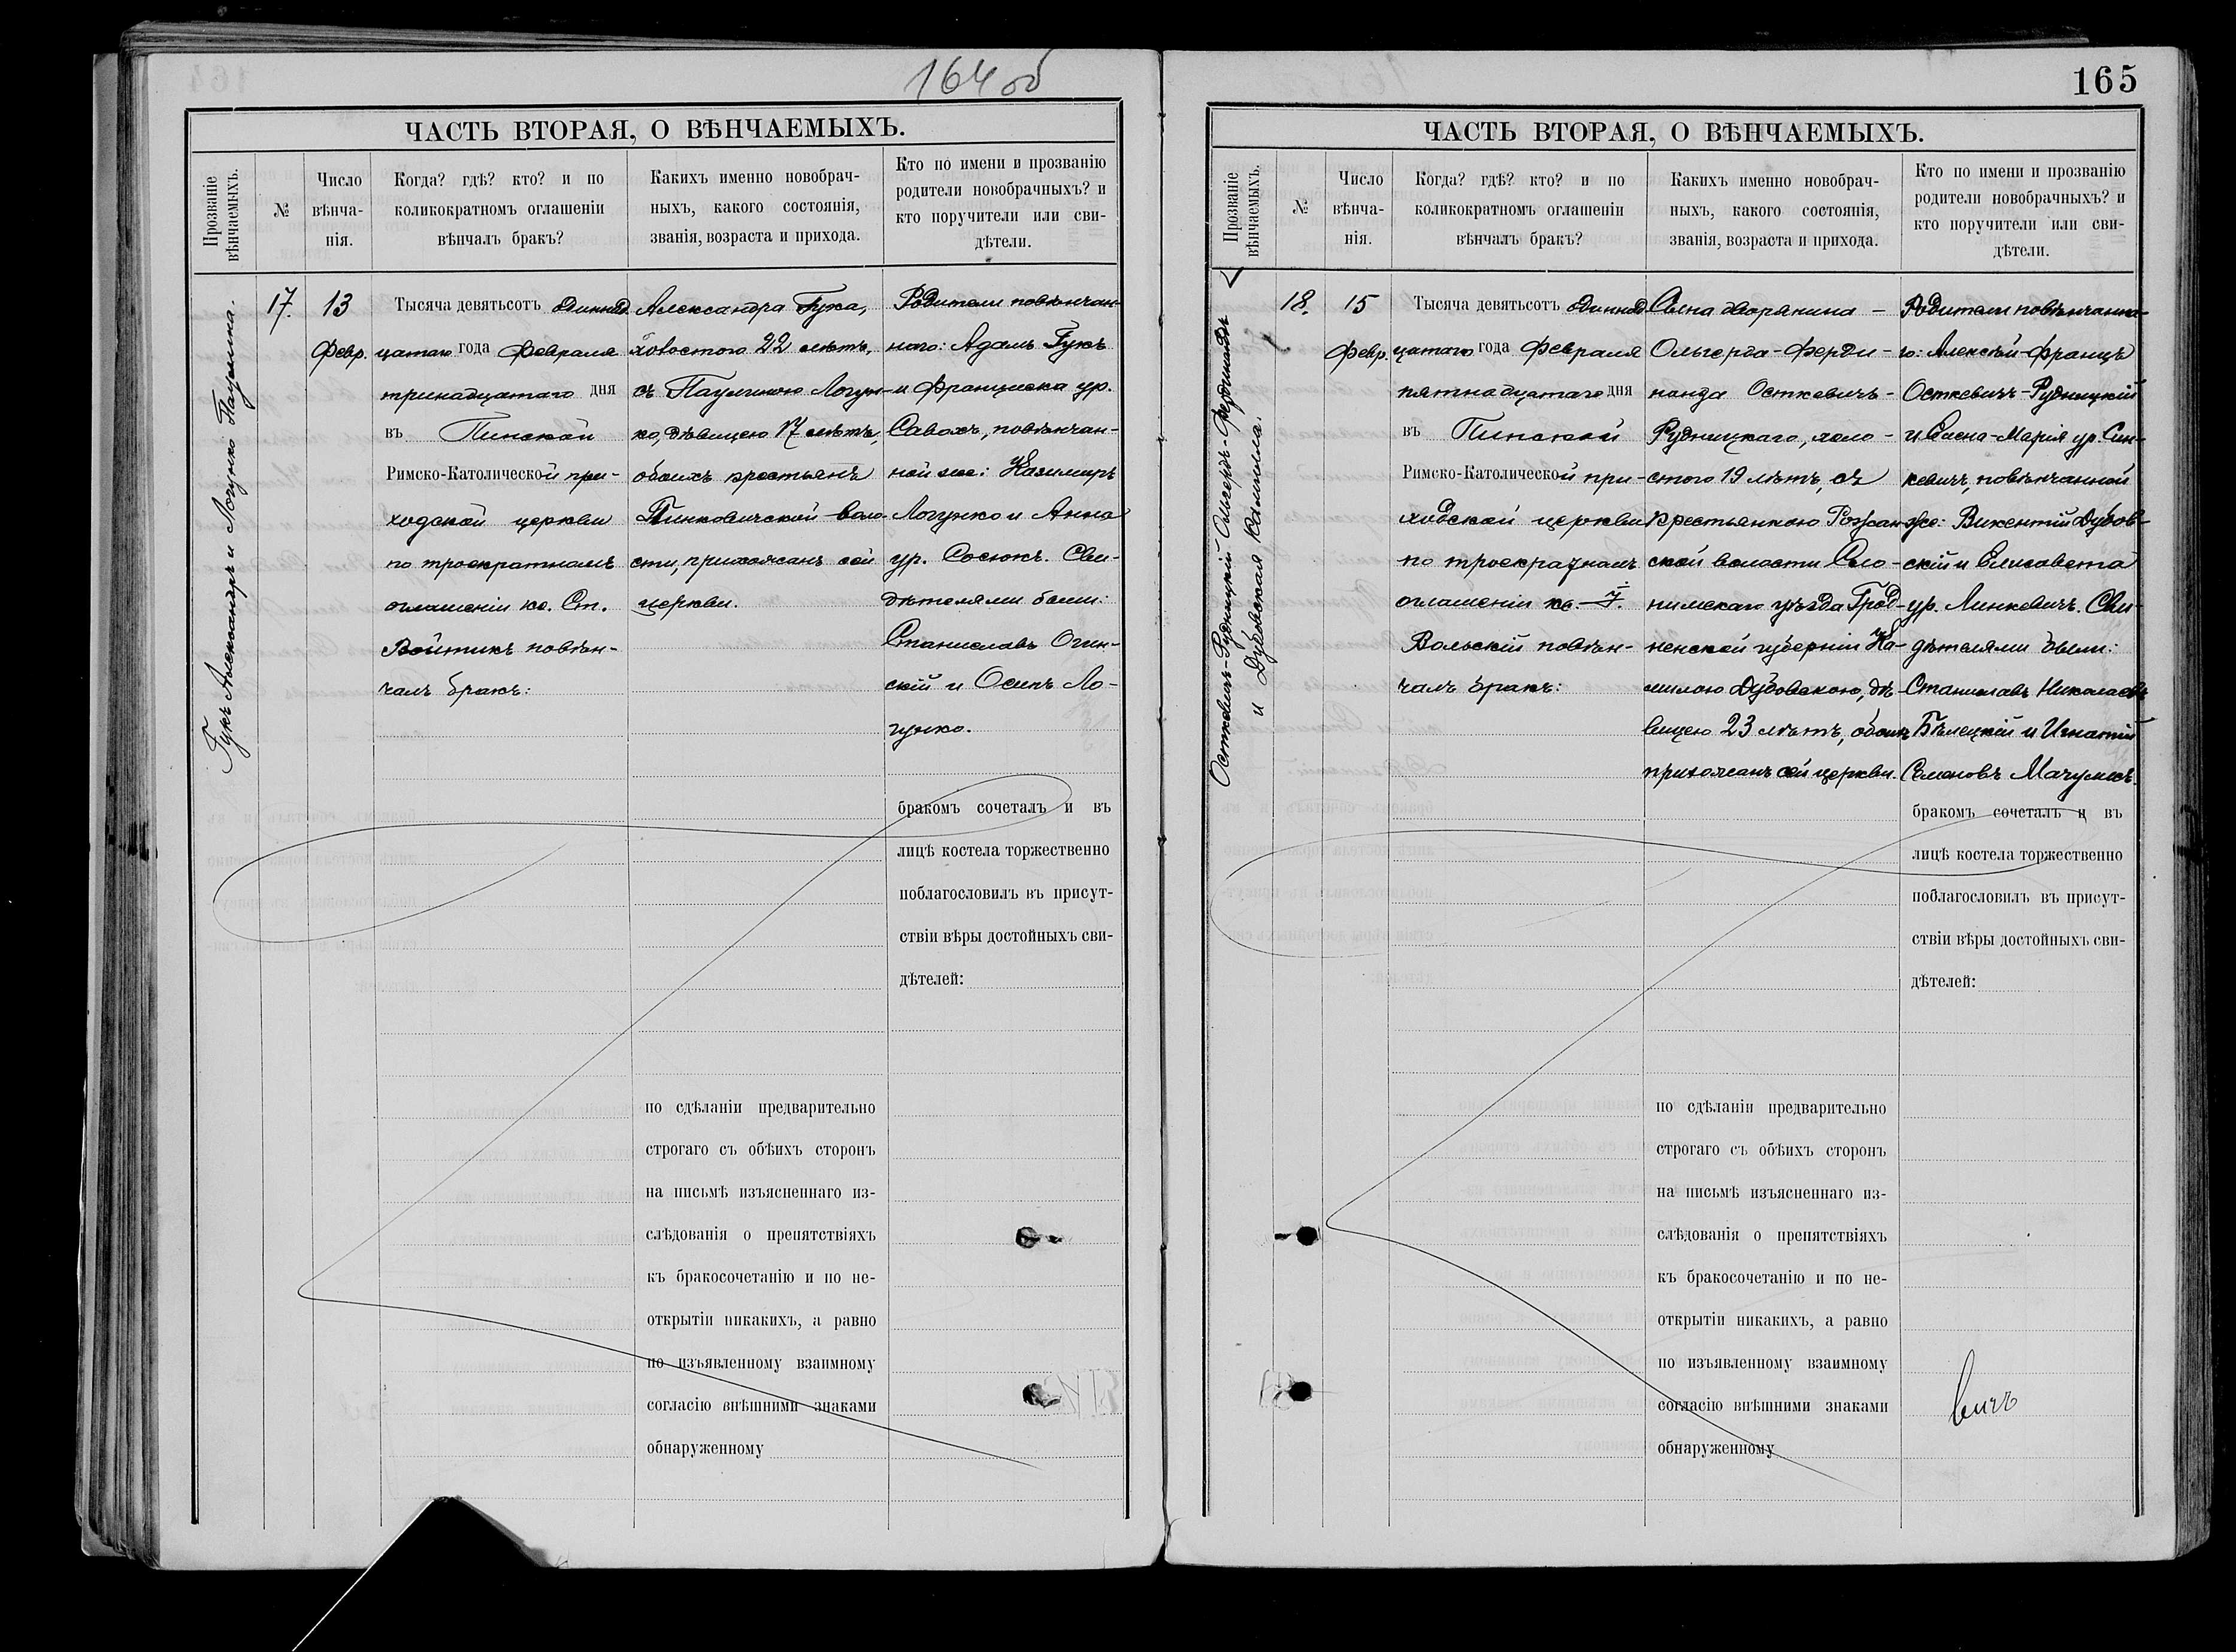 164 об
ЧАСТЬ ВТОРАЯ, О ВѢНЧАЕМЫХЪ.
Прозваніе вѣнчаемыхъ.
№
Число вѣнча-
нія.
Когда? гдѣ? кто? и по
коликократномъ оглашеніи
вѣнчалъ бракъ?
Какихъ именно новобрач-
ныхъ, какого состоянія,
званія, возраста и прихода.
Кто по имени и прозванію
родители новобрачныхъ? и
кто поручители или сви-
дѣтели.
Гукъ Александръ и Логунко Паулина.
17.
13
Февр.
Тысяча девятьсотъ одиннад
цатаго года Февраля
тринадцатаго дня
въ Пинской
Римско-Католической при-
ходской церкви
по троекратномъ
оглашеніи кс. Ст.
Войтикъ повѣн-
чалъ бракъ:
Александра Гука,
холостого 22 лѣтъ,
съ Паулиною Логун-
ко, дѣвицею 17 лѣтъ,
обоихъ крестьянъ
Пинковичской воло-
сти, прихожанъ сей
церкви.
Родители повѣнчан-
наго: Адамъ Гукъ
и Франциска ур.
повѣнчан-
ной же: Казимиръ
Логунко и Анна
ур. Сосюкъ. Сви-
дѣтелями были:
Станиславъ Огин-
скій и Осипъ Ло-
гунко.
бракомъ сочеталъ и въ
лицѣ костела торжественно
поблагословилъ въ присут-
ствіи вѣры достойныхъ сви-
дѣтелей:
по сдѣланіи предварительно
строгаго съ обѣихъ сторонъ
на письмѣ изъясненнаго из-
слѣдованія о препятствіяхъ
къ бракосочетанію и по не-
открытіи никакихъ, а равно
по изъявленному взаимному
согласію внѣшними знаками
обнаруженному
165
ЧАСТЬ ВТОРАЯ, О ВѢНЧАЕМЫХЪ.
Прозваніе вѣнчаемыхъ.
№
Число вѣнча-
нія.
Когда? гдѣ? кто? и по
коликократномъ оглашеніи
вѣнчалъ бракъ?
Какихъ именно новобрач-
ныхъ, какого состоянія,
званія, возраста и прихода.
Кто по имени и прозванію
родители новобрачныхъ? и
кто поручители или сви-
дѣтели.
Осткевичъ-Рудницкій Ольгердъ-Фердинандъ
и Дубовская Камилла.
18.
15
Февр.
Тысяча девятьсотъ одиннад
цатаго года Февраля
пятнадцатаго дня
въ Пинской
Римско-Католической при-
ходской церкви
по троекратномъ
оглашеніи кс.
Вольскій повѣн-
чалъ бракъ:
Сына дворянина -
Ольгерда-Ферди-
нанда Осткевичъ-
Рудницкаго, холо-
стого 19 лѣтъ, съ
крестьянкою Рожан-
ской волости Сло-
нимскаго уѣзда Грод-
ненской губерніи Ка-
милою Дубовскою, дѣ-
вицею 23 лѣтъ, обоихъ
прихожанъ сей церкви.
Родители повѣнчанна-
го: Алексѣй-Францъ
Осткевичъ-Рудницкій
ур. Син-
кевичъ, повѣнчанной
же: Викентій Дубов-
скій и Елисавета
ур. Линкевичъ. Сви-
дѣтелями были:
Станиславъ Николаевъ
Бѣлецкій и Игнатій
Семеновъ Мачулисъ.
бракомъ сочеталъ и въ
лицѣ костела торжественно
поблагословилъ въ присут-
ствіи вѣры достойныхъ сви-
дѣтелей:
по сдѣланіи предварительно
строгаго съ обѣихъ сторонъ
на письмѣ изъясненнаго из-
слѣдованія о препятствіяхъ
къ бракосочетанію и по не-
открытіи никакихъ, а равно
по изъявленному взаимному
согласію внѣшними знаками
обнаруженному
вичъ